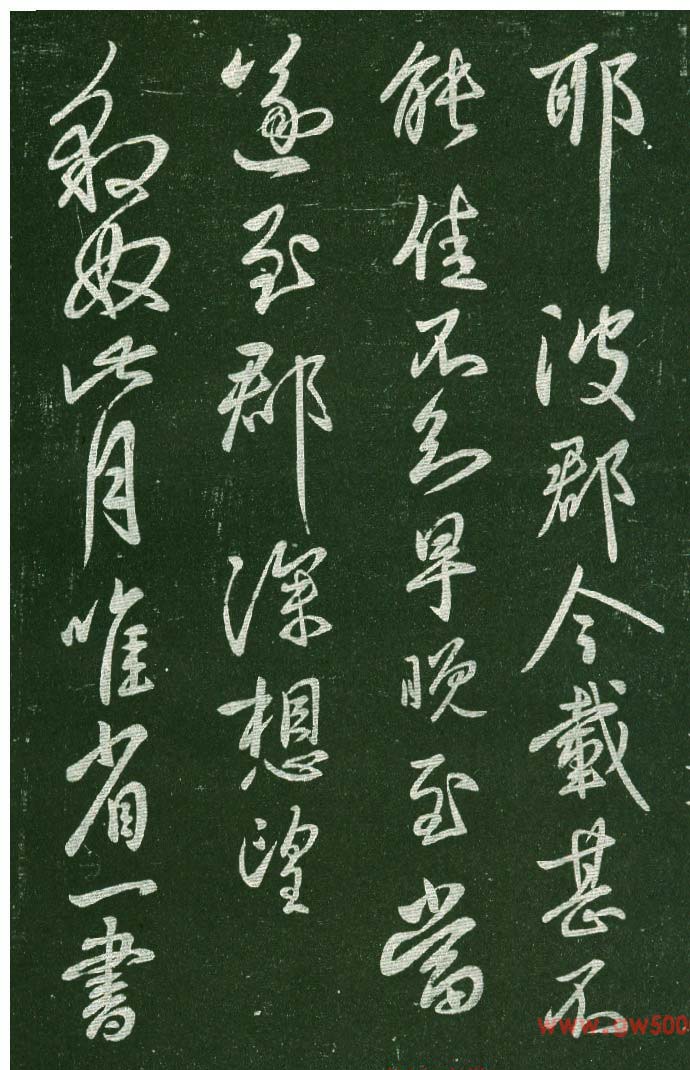 耶彼郡今載甚不
能佳不知早晚至當
遂至郡深想望
豹奴此月唯省一書
www.gw500.